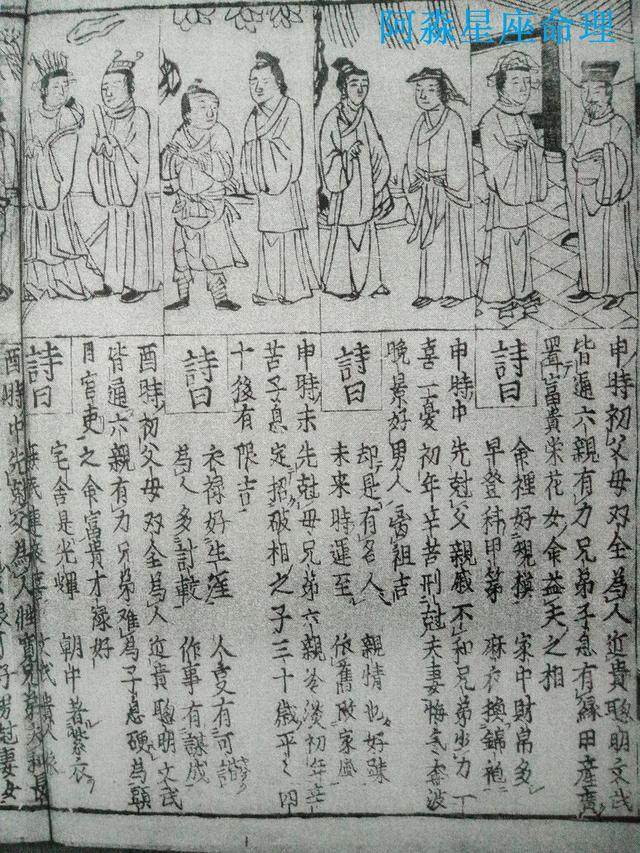 阿淼星座命理
申時初父母双全為人近貴聰明文武
皆通六親有力兄弟子息有縁田産廣
置富貴榮花女命益夫之相
詩曰
命裡好規模 家中財帛多
早登科甲第 麻衣換錦袍
申時中先尅父親戚不和兄弟少力一
喜一憂初年辛苦刑尅夫妻悔氣奔波
晩景好男人離祖吉
詩曰
却是有名人 親情也好疎
未来時運至 依舊改家盛
申時末先尅母兄弟六親冷淡初年辛
苦子息定招破相之子三十歳平之四
十後有限吉
詩曰
衣禄好生涯 人支有可諧
為人多計較 作事有謀成
酉時初父母双全為人近貴聰明文武
皆通六親有力兄弟難為子息硬為頭
目官吏之命富貴才禄好
詩曰
宅舎是光輝 朝中著紫衣
貴人
酉時中先尅父為人性
好 尅妻女